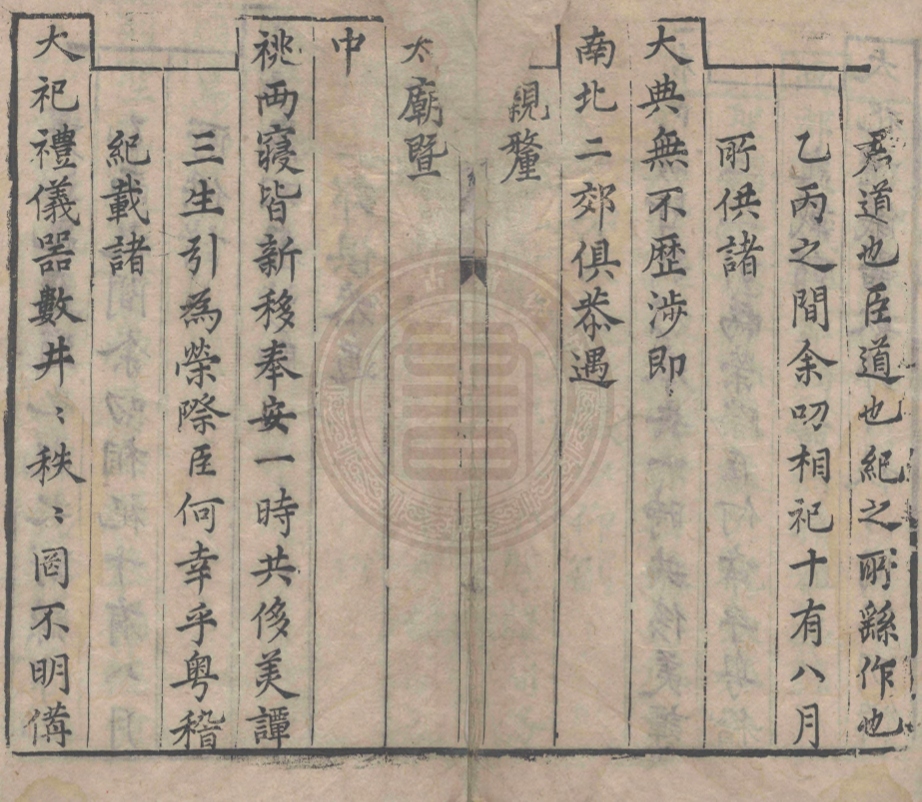 君道也臣道也紀之所繇作也
乙丙之間余叨相祀十有八月
所供諸
大典無不歷涉即
南北二郊俱恭遇
親釐
太廟暨
中
祧兩寢皆新移奉安一時共侈美譚
三生引為榮際臣何幸乎粤稽
紀載諸
大祀禮儀器數井〻秩〻罔不明備